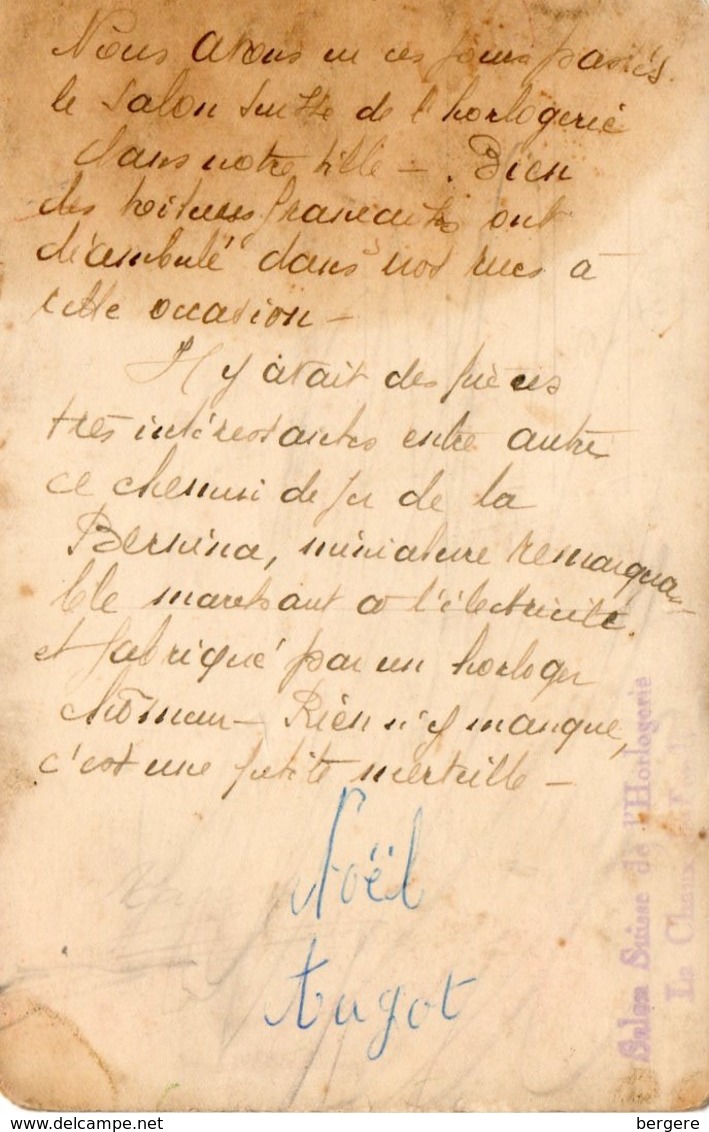 Nous avons eu ces jours passés
le Salon Suisse de l'horlogerie
dans notre ville — . Bien
des voitures françaises ont
déambulé dans nos rues à
cette occasion —
Il y avait des pièces
très intéressantes entre autres
ce chemin de fer de la
Bernina, miniature remarqua-
ble marchant à l'électricité.
et fabriqué par un horloger
chômeur — Rien n'y manque,
c'est une petite merveille —
Noël
Augot
Salon Suisse de l'Horlogerie
La Chaux
bergere